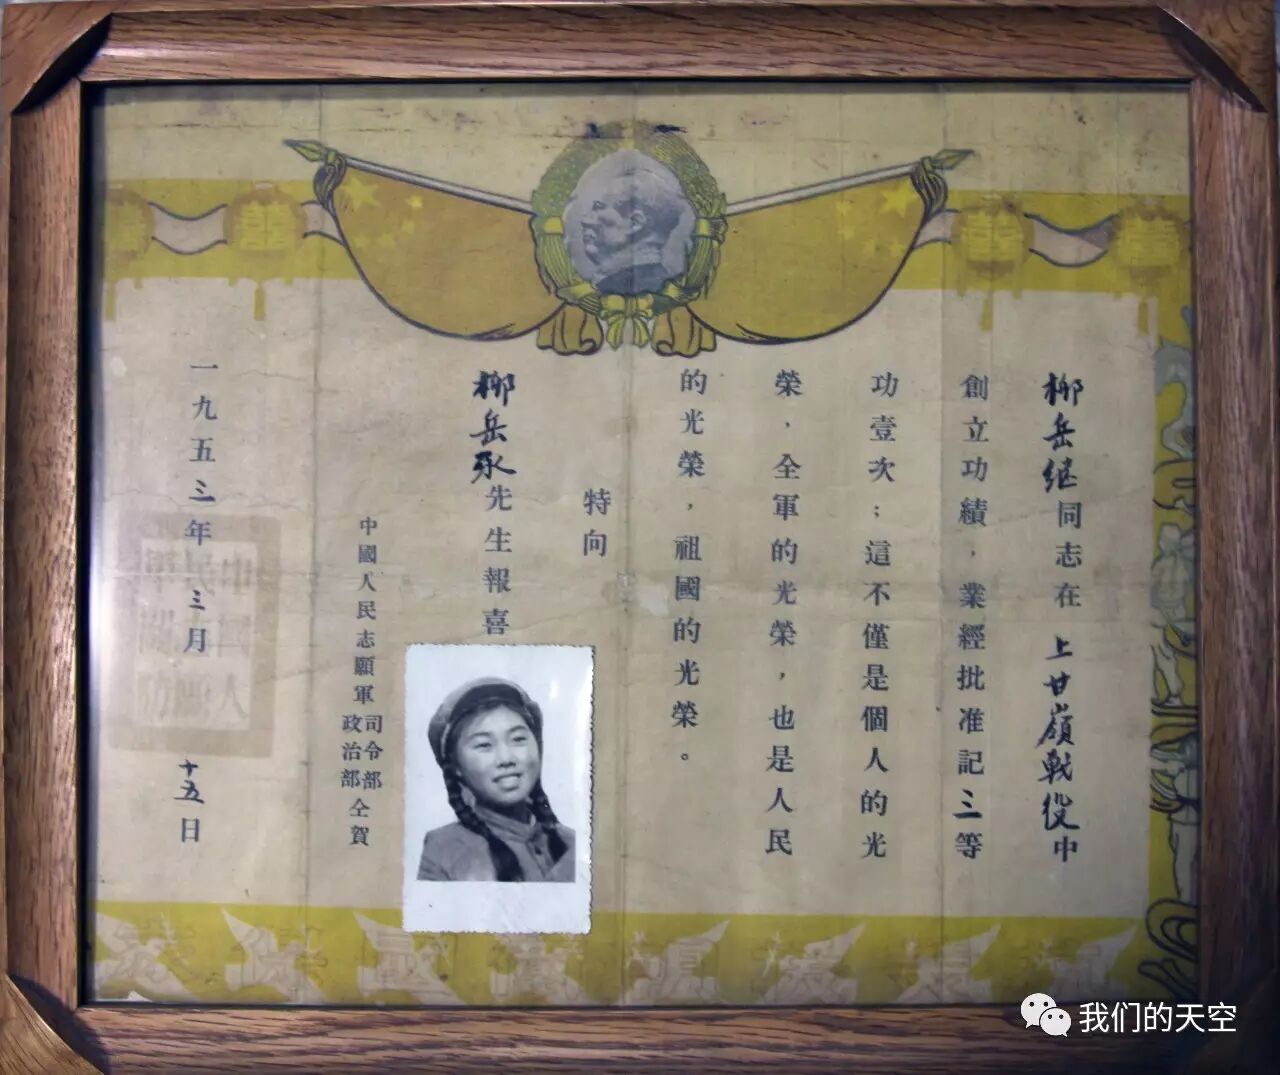 柳岳继同志在 上甘嶺戰役中
創立功績，業經批准記三等
功壹次；這不僅是個人的光
榮，全軍的光榮，也是人民
的光榮，祖國的光榮。
特向
柳岳承先生報喜
中國人民志願軍 司令部 政治部 仝賀
一九五三年 三月 十五日
我们的天空